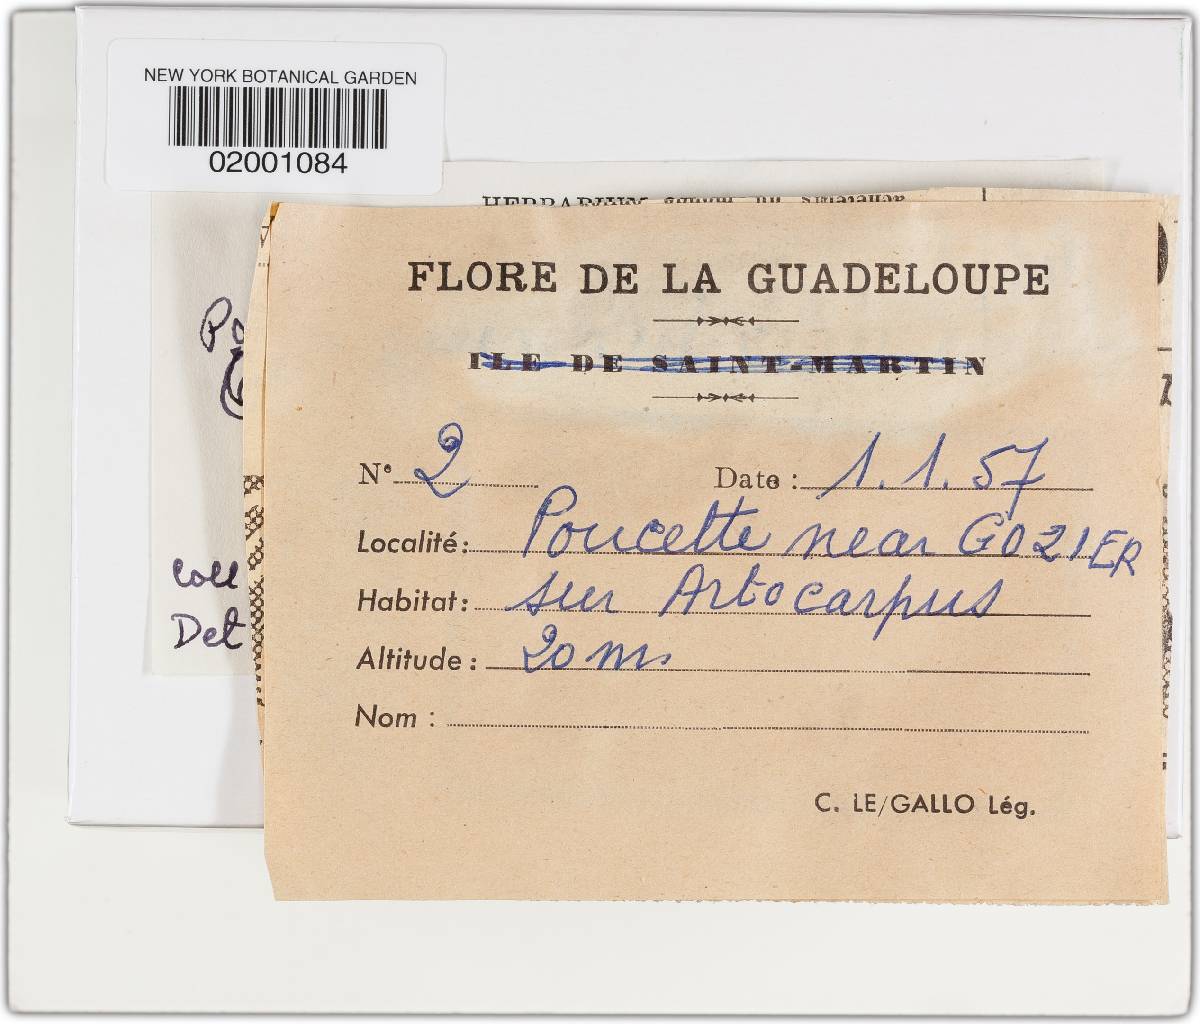 NEW YORK BOTANICAL GARDEN
02001084
FLORE DE LA GUADELOUPE
ILE DE SAINT-MARTIN
N° 2 Date : 1.1.57
Localité: Poucette near GOZIER
Habitat: sur Artocarpus
Altitude: 20 m.
Nom :
C. LE/GALLO Lég.
Po
Coll
Det